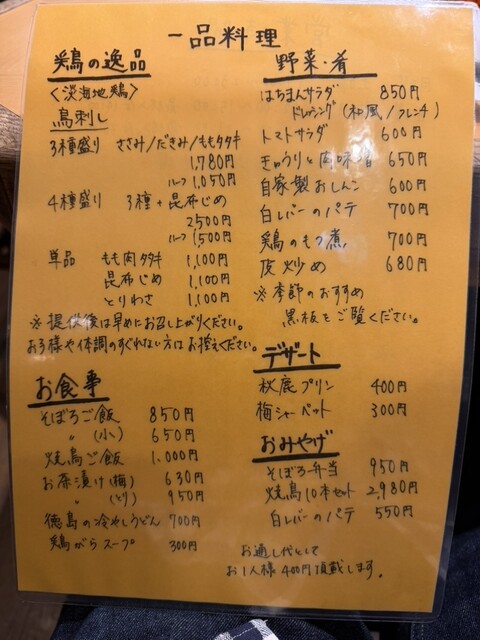 一品料理
鶏の逸品
〈淡海地鶏〉
鳥刺し
3種盛り ささみ/だきみ/ももタタキ
1,780円
ハーフ 1,050円
4種盛り 3種+昆布じめ
2500円
ハーフ 1500円
単品 もも肉タタキ 1,100円
昆布じめ 1,100円
とりわさ 1,100円
※提供後は早めにお召し上がりください。
お子様や体調のすぐれない方はお控えください。
お食事
そぼろご飯 850円
〃 (小) 650円
焼鳥ご飯 1,000円
お茶漬け(梅) 630円
〃 (とり) 950円
徳島の冷やしうどん 700円
鶏がらスープ 300円
野菜・肴
はちまんサラダ 850円
ドレッシング(和風/フレンチ)
トマトサラダ 600円
きゅうりと肉味噌 650円
自家製おしんこ 600円
白レバーのパテ 700円
鶏のもつ煮 700円
皮炒め 680円
※季節のおすすめ
黒板をご覧ください。
デザート
秋鹿プリン 400円
梅シャーベット 300円
おみやげ
そぼろ弁当 950円
焼鳥10本セット 2,980円
白レバーのパテ 550円
お通し代として
お1人様400円頂戴します。